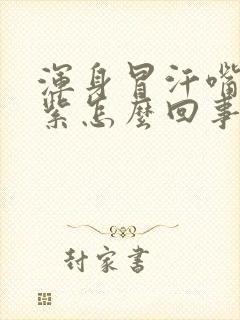 渾身冒汗嘴
紫怎麼回事
封家書